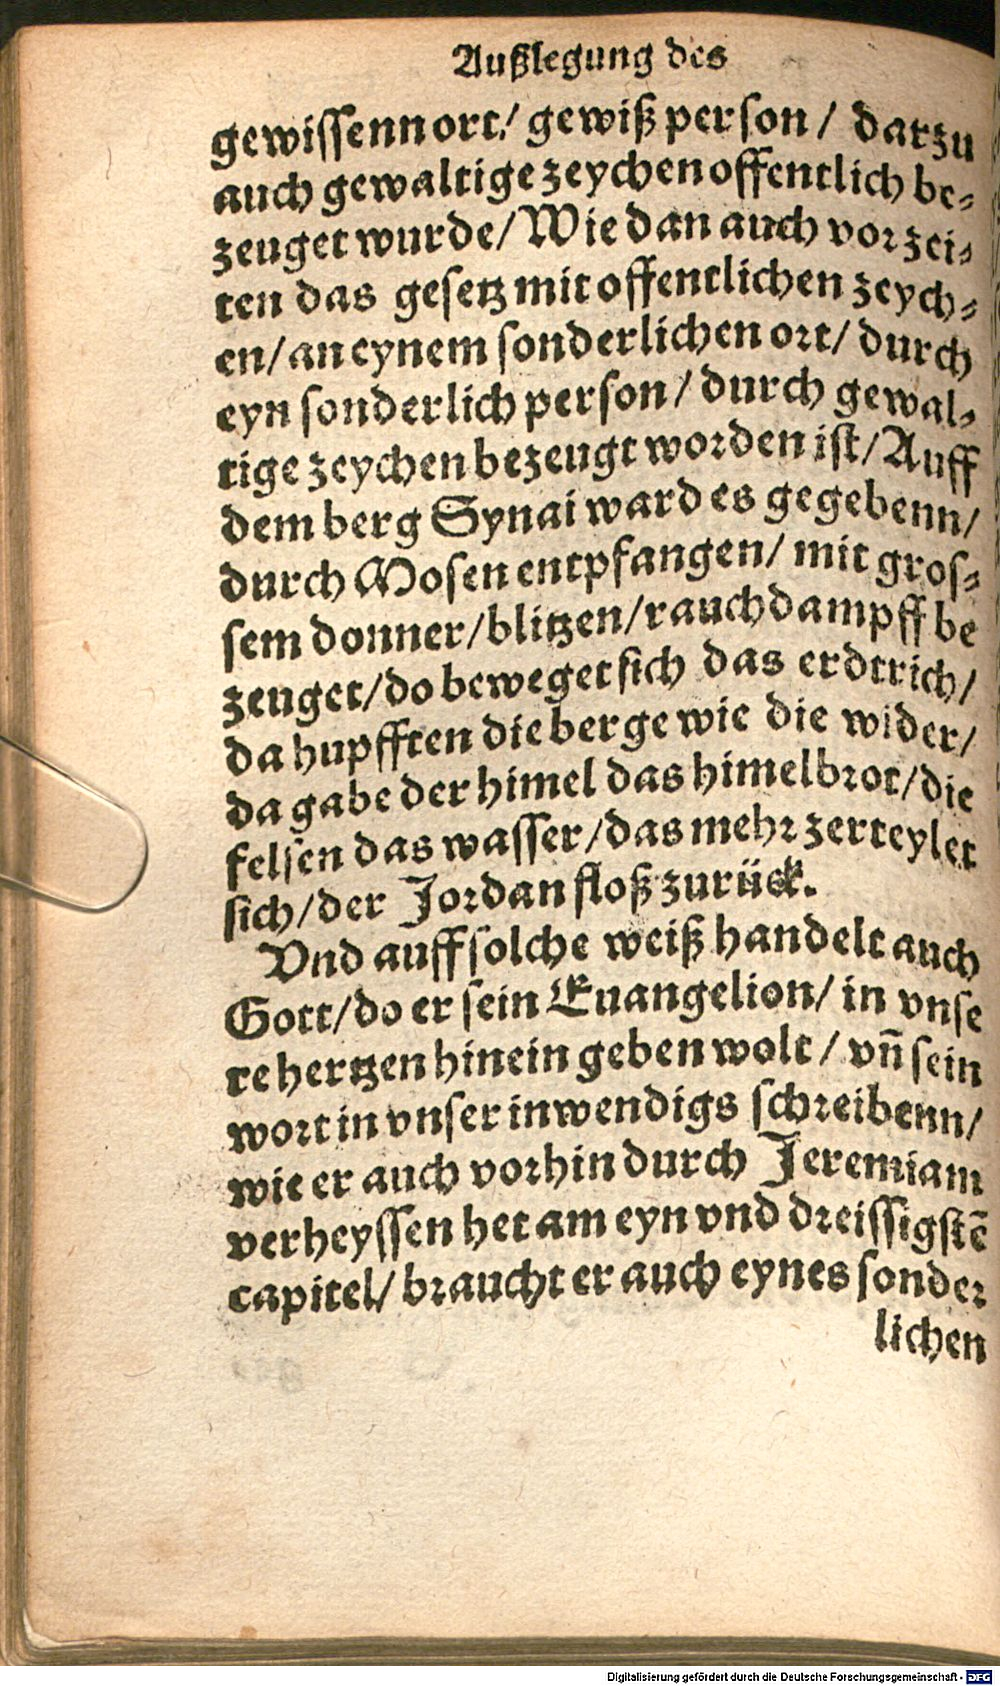 Außlegung des
gewissenn ort/ gewiß person/ darzu
auch gewaltige zeychen offentlich be⸗
zeuget wurde/ Wie dan auch vor zei⸗
ten das gesetz mit offentlichen zeych⸗
en/ an eynem sonderlichen ort/ durch
eyn sonderlich person/ durch gewal⸗
tige zeychen bezeugt worden ist/ Auff
dem berg Synai ward es gegebenn/
durch Mosen entpfangen/ mit gros⸗
sem donner/ blitzen/ rauchdampff be
zeuget/ do beweget sich das erdtrich/
da hupfften die berge wie die wider/
da gabe der himel das himelbrot/ die
felsen das wasser/ das mehr zerteylet
sich/ der Jordan floß zurück.
Vnd auff solche weiß handelt auch
Gott/ do er sein Euangelion/ in vnse
re hertzen hinein geben wolt/ vñ sein
wort in vnser inwendigs schreibenn/
wie er auch vorhin durch Jeremiam
verheyssen het am eyn vnd dreissigstē
capitel/ braucht er auch eynes sonder
lichen
Digitalisierung gefördert durch die Deutsche Forschungsgemeinschaft - DFG